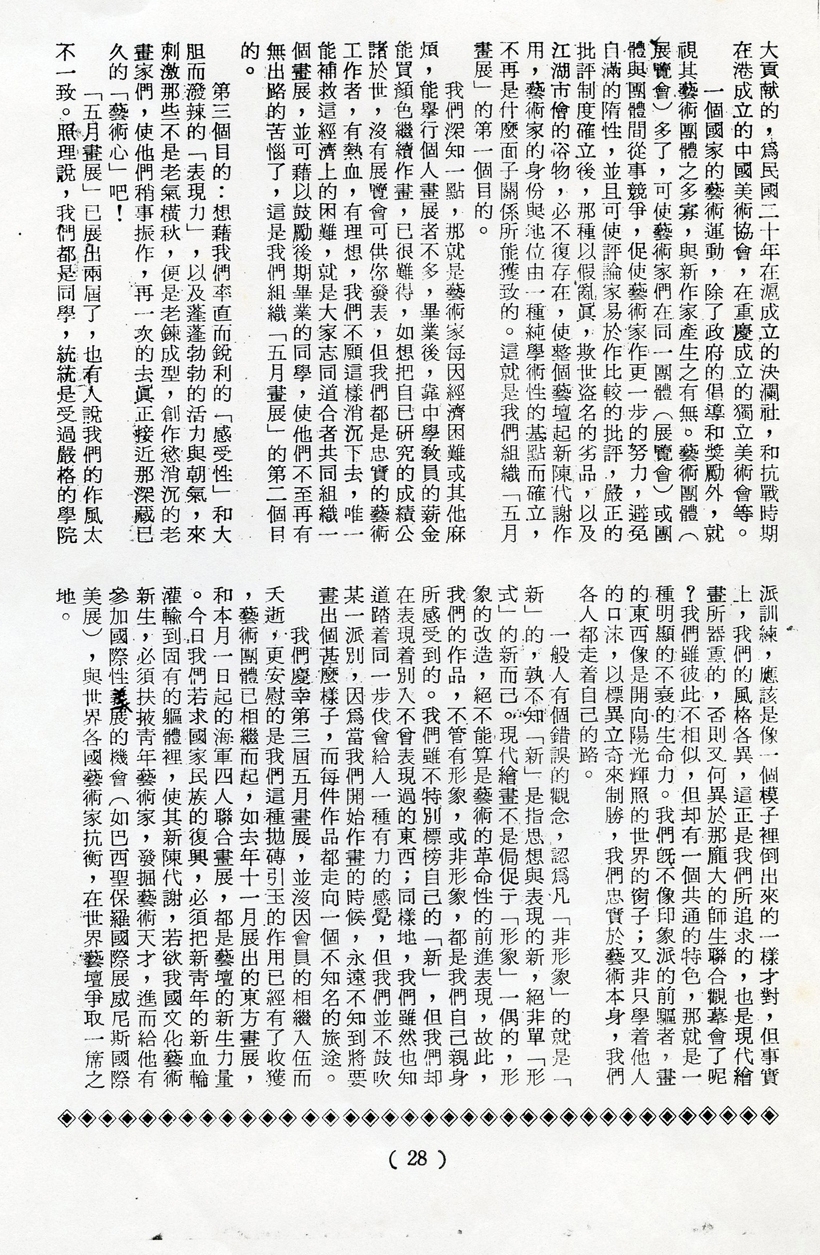 大貢献的，爲民國二十年在滬成立的決瀾社，和抗戰時期
在港成立的中國美術協會，在重慶成立的獨立美術會等。
一個國家的藝術運動，除了政府的倡導和獎勵外，就
視其藝術團體之多寡，與新作家產生之有無。藝術團體（
展覽會）多了，可使藝術家們在同一團體（展覽會）或團
體與團體間從事競爭，促使藝術家作更一步的努力，避免
自滿的隋性，並且可使評論家易於作比較的批評，嚴正的
批評制度確立後，那種以假亂眞，欺世盜名的劣品，以及
江湖市儈的俗物，必不復存在，使整個藝壇起新陳代謝作
用，藝術家的身份與地位由一種純學術性的基點而確立，
不再是什麼面子關係所能獲致的。這就是我們組織「五月
畫展」的第一個目的。
我們深知一點，那就是藝術家每因經濟困難或其他麻
煩，能舉行個人畫展者不多，畢業後，靠中學教員的薪金
能買顏色繼續作畫，已很難得，如想把自己研究的成績公
諸於世，沒有展覽會可供你發表，但我們都是忠實的藝術
工作者，有熱血，有理想，我們不願這樣消沉下去，唯一
能補救這經濟上的困難，就是大家志同道合者共同組織一
個畫展，並可藉以鼓勵後期畢業的同學，使他們不至再有
無出路的苦惱了，這是我們組織「五月畫展」的第二個目
的。
第三個目的：想藉我們率直而銳利的「感受性」和大
胆而潑辣的「表現力」，以及蓬蓬勃勃的活力與朝氣，來
刺激那些不是老氣橫秋，便是老鍊成型，創作慾消沉的老
畫家們，使他們稍事振作，再一次的去眞正接近那深藏已
久的「藝術心」吧！
「五月畫展」已展出兩屆了，也有人說我們的作風太
不一致。照理說，我們都是同學，統統是受過嚴格的學院
派訓練，應該是像一個模子裡倒出來的一樣才對，但事實
上，我們的風格各異，這正是我們所追求的，也是現代繪
畫所器重的，否則又何異於那龐大的師生聯合觀摹會了呢
？我們雖彼此不相似，但却有一個共通的特色，那就是一
種明顯的不衰的生命力。我們旣不像印象派的前驅者，畫
的東西像是開向陽光輝照的世界的窗子；又非只學着他人
的口沫，以標異立奇來制勝，我們忠實於藝術本身，我們
各人都走着自己的路。
一般人有個錯誤的觀念，認爲凡「非形象」的就是「
新」的，孰不知「新」是指思想與表現的新，絕非單「形
式」的新而已。現代繪畫不是侷促于「形象」一偶的，形
象的改造，絕不能算是藝術的革命性的前進表現，故此，
我們的作品，不管有形象，或非形象，都是我們自己親身
所感受到的。我們雖不特別標榜自己的「新」，但我們却
在表現着別人不曾表現過的東西；同樣地，我們雖然也知
道踏着同一步伐會給人一種有力的感覺，但我們並不鼓吹
某一派別，因爲當我們開始作畫的時候，永遠不知到將要
畫出個甚麼樣子，而每件作品都走向一個不知名的旅途。
我們慶幸第三屆五月畫展，並沒因會員的相繼入伍而
夭逝，更安慰的是我們這種拋磚引玉的作用已經有了收獲
，藝術團體已相繼而起，如去年十一月展出的東方畫展，
和本月一日起的海軍四人聯合畫展，都是藝壇的新生力量
。今日我們若求國家民族的復興，必須把新靑年的新血輪
灌輸到固有的軀體裡，使其新陳代謝，若欲我國文化藝術
新生，必須扶掖靑年藝術家，發掘藝術天才，進而給他有
參加國際性義展的機會（如巴西聖保羅國際展威尼斯國際
美展），與世界各國藝術家抗衡，在世界藝壇爭取一席之
地。
( 28 )